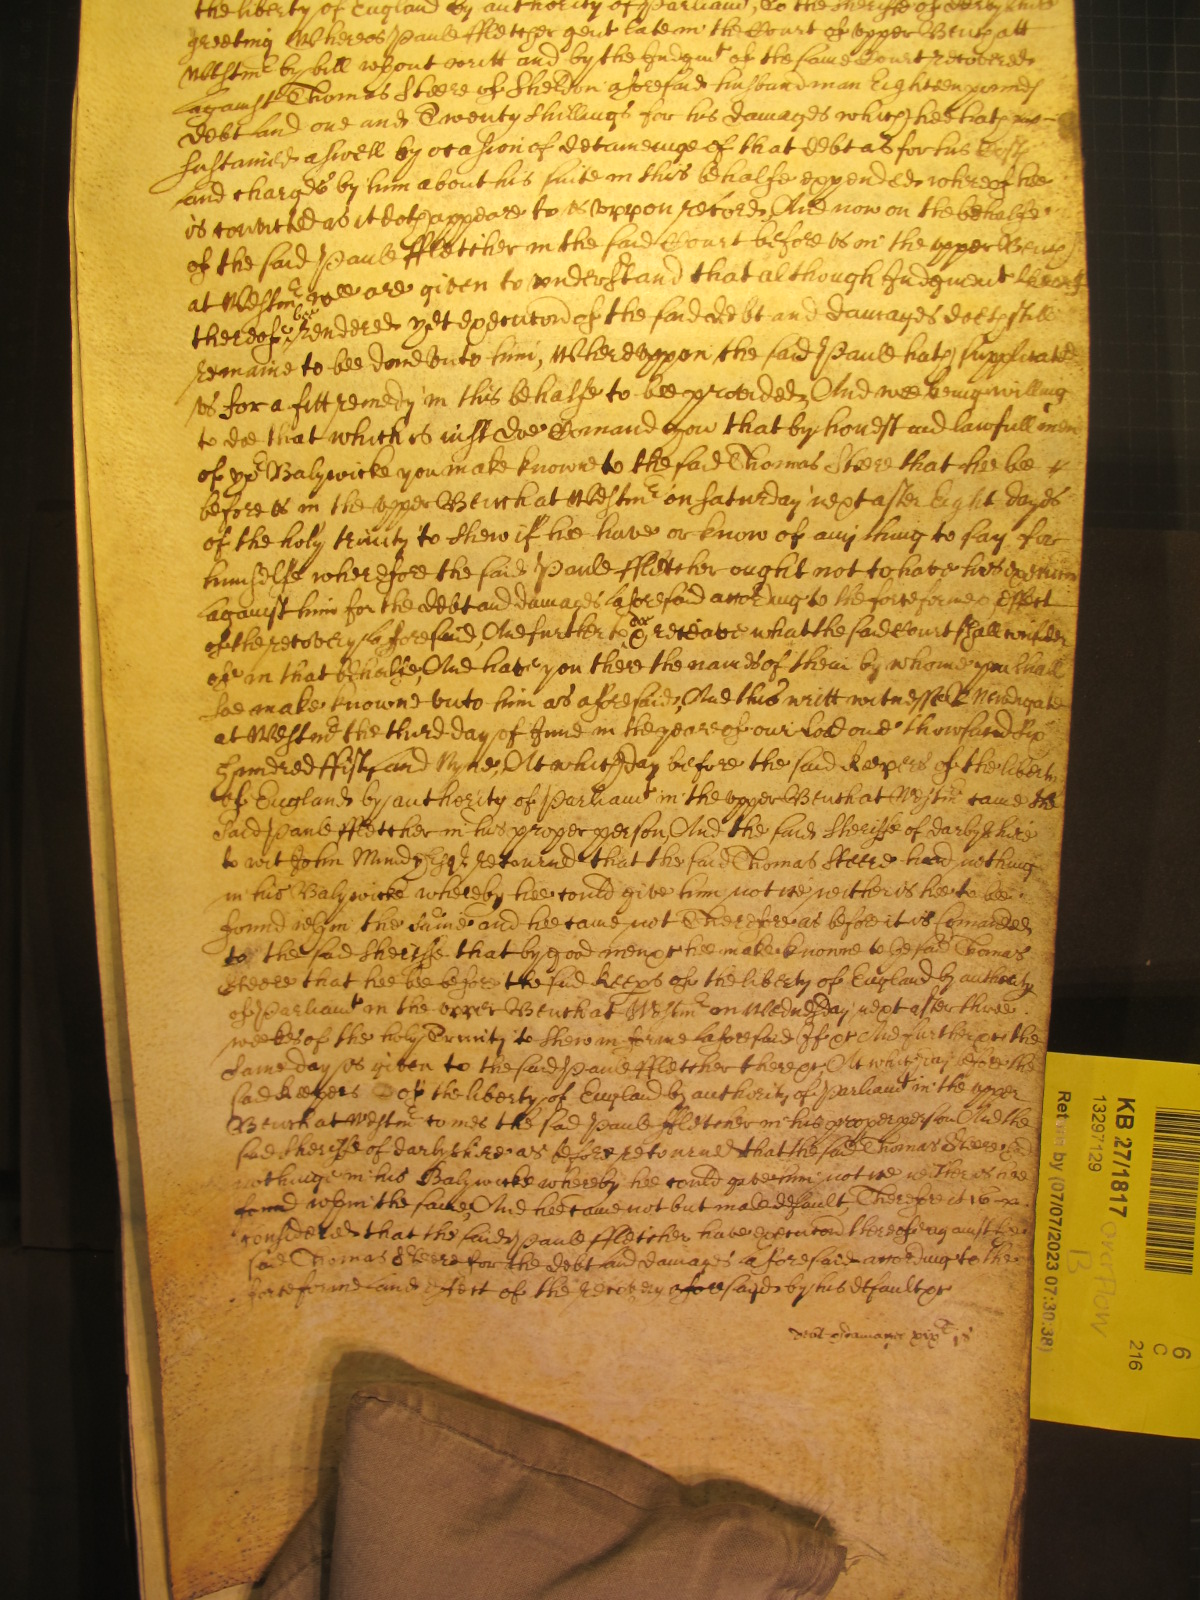 the liberty of England by authority of Parliamt, To the Sheriffe of Derbyshire
greeting Whereas Paule ffletcher gent late in the Court of upper Bench att
Westmr by bill wthout writt and by the Judgmt of the same Court recovered
against Thomas Steere of Sheldon aforesaid husbandman Eighteen pounds
debt and one and Twenty Shillings for his damages which hee hath
sustained aswell by occasion of deteineinge of that debt as for his Costs
and charges by him about his suite in this behalfe expended whereof hee
is convicted as it doth appeare to us uppon record, And now on the behalfe
of the said Paule ffletcher in the said Court before us in the upper Bench
at Westmr wee are given to understand that although Judgment
thereof bee Rendered yet execucon of the said debt and damages doth still
remaine to bee done unto him, Whereuppon the said Paule hath supplicated
us for a fitt remedy in this behalfe to bee provided, And wee being willing
to doe that which is iust doe Comand you that by honest and lawfull men
of yor Balywicke you make knowne to the said Thomas Steere that hee bee
before us in the upper Bench at Westmr on Saturday next after Eight dayes
of the holy trinity to shew if hee have or know of any thing to say for
himselfe wherefore the said Paule ffletcher ought not to have his execucon
against him for the debt and damages aforesaid according to the force forme & effect
of the recovery aforesaid, And further to doe & receave what the said Court shall consider
of in that behalfe, And have you there the names of them by whome you shall
soe make knowne unto him as aforesaid, And this writt witnesse R Newdigate
at Westmr the third day of June in the yeare of our Lord one thowsand Six
Hundred ffifty and Nyne, At which day before the said Keepers of the liberty
of England by authority of Parliamt in the upper Bench at Westmr came the
said Paule ffletcher in his proper person, And the said Sheriffe of darbyshire
to wit John Mundy Esqr retourned that the said Thomas Steere had nothing
in his Balywicke whereby hee could give him notice neither is hee to bee
found wthin the same and hee came not Therefore as before it is Comanded
to the said Sheriffe that by good men &c hee make knowne to the said Thomas
Steere that hee bee before the said Keeps of the liberty of England by authority
of Parliamt in the upper Bench at Westmr on Wednesday next after three
weekes of the holy Trinity to shew in forme aforesaid If &c And further &c the
same day is given to the said Paule ffletcher there &c, At which day before the
said Keepers of the liberty of England by authority of Parliamt in the upper
Bench at Westmr comes the said Paule ffletcher in his proper person And the
said Sheriffe of darbyshire as before retourned that the said Thomas Steere had
nothinge in his Balywicke whereby hee could give him notice neither is hee
found wthin the same, And hee came not but made default, Therefore it is
considered that the said Paule ffletcher have execucon thereof against the
said Thomas Steere for the debt and damages aforesaid according to the
force forme and effect of the recovery aforesaid by his default &c
debt & damages xix£ js
KB 27/1817
13297129
Return by (07/07/2023 07:30:38)
overflow
13
6
C
216